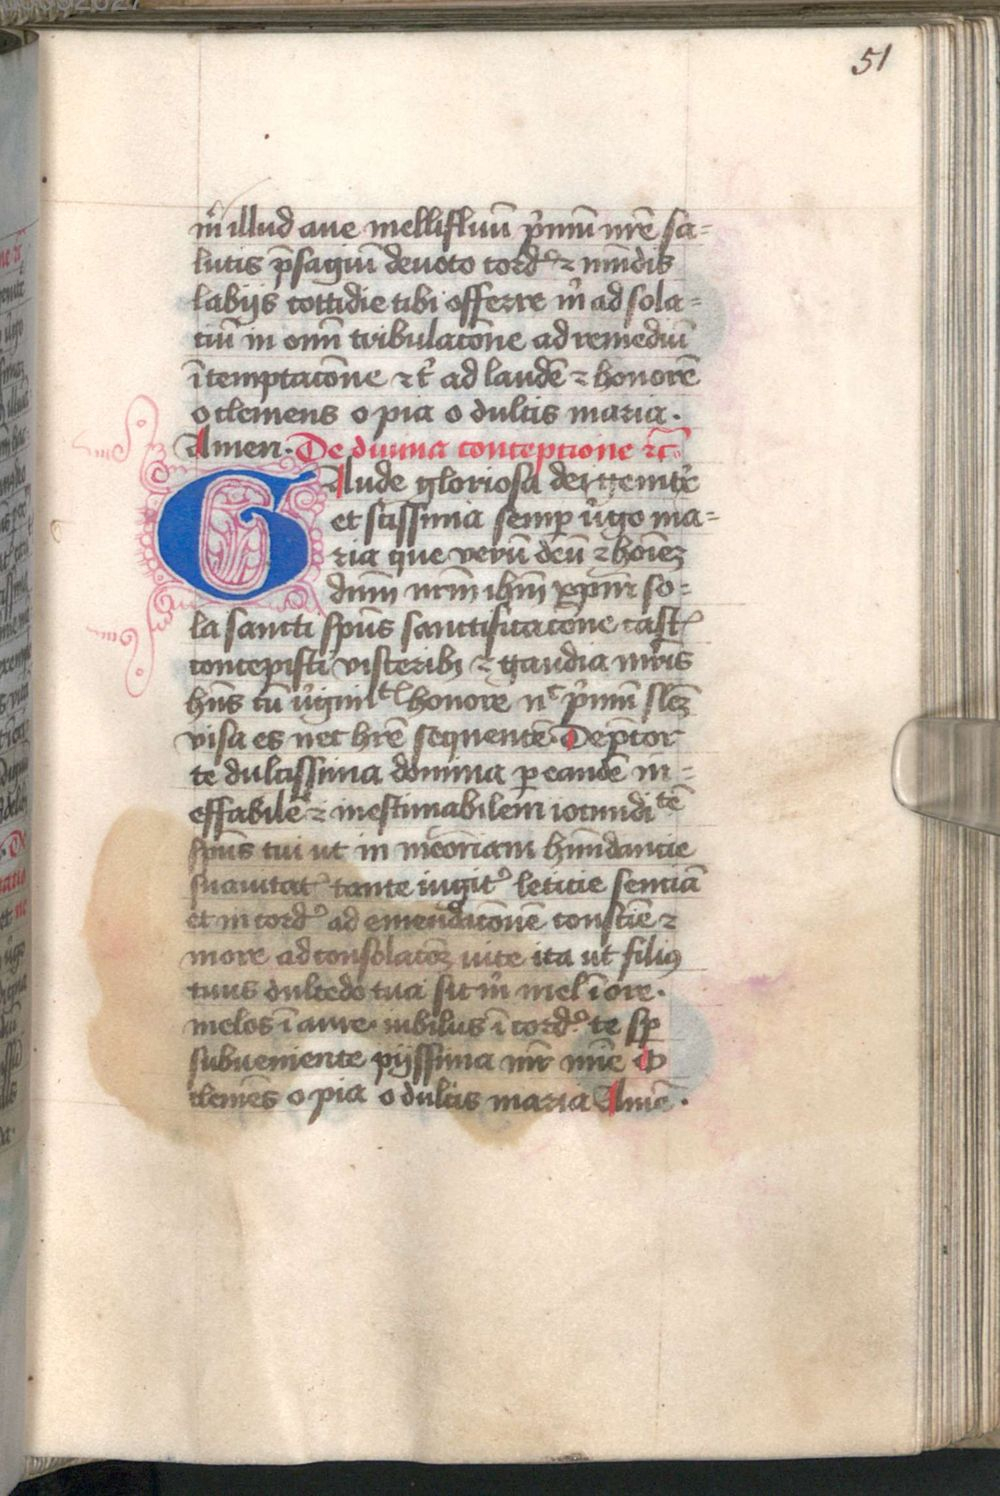 51
m̄ illud aue mellifluū p̄mū nr̄e sa=
lutis p̄sagiū deuoto cordꝰ ⁊ mūdis
labijs cottidie tibi offerre m̄ ad sola=
ciū in om̄i tribulacōne ad remediū
ī temptacōne ⁊ ad laudē ⁊ honorē
o clemens o pia o dulcis maria.
Amen. De diuina conceptione ⁊c̄
GAude gloriosa dei genitͥx
et sc̄issima semp̄ v̄go ma=
ria que verū deū ⁊ hoīem
dn̄m nr̄m ih̄m xp̄m so=
la sancti sp̄us sanctificacōne cast
concepisti visceribꝫ ⁊ gaudia mr̄is
hn̄s cū v̄gin honore nͨ p̄mū
visa es nec hr̄e sequentē. Dep̄cor
te dulcissima domina p̄ eandē in=
effabilē ⁊ inestimabilem iocundiͭᵉ̄
sp̄us tui ut in meōriam hūndancie
suauitatꝰ tante iugitꝰ leticie senciā
et in cordꝰ ad emendacōnē consciē ⁊
more ad consolacōꝫ uite ita ut filiꝰ
tuus dulcedo tua sit m̄ mel ī ore.
melos ī aure. iubilus ī cordꝰ te sp̄
subueniente pijssima mr̄ mīe O
clemēs o pia o dulcis maria Amē.